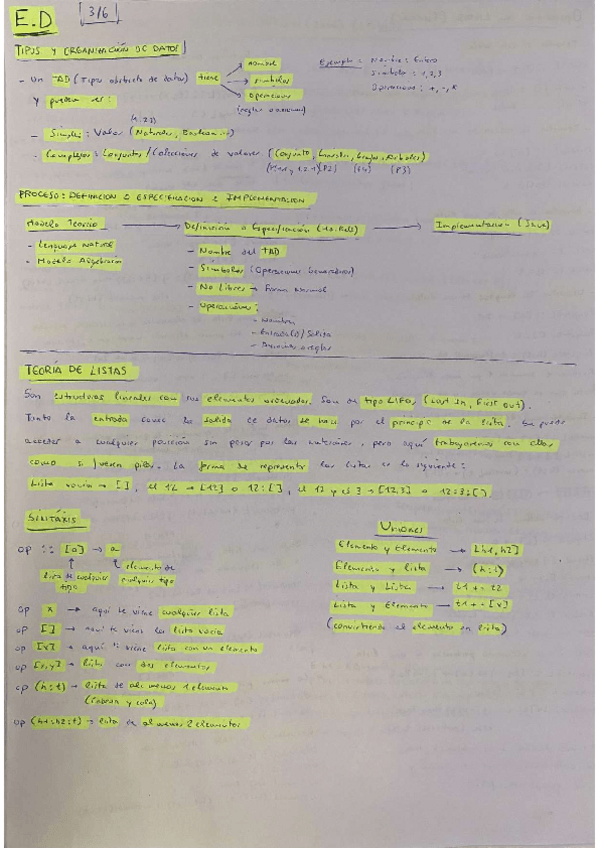 E.D [3/6]
TIPOS Y ORGANIZACIÓN DE DATOS
- Un TAD (Tipo abstracto de datos) tiene → nombre
→ símbolos
→ operaciones
y pueden ser:
Ejemplo: Nombre: Entero
Símbolo: 1,2,3
Operaciones: +, -, x
- Simples: Valor (Naturales, Booleanos)
- Complejos: Conjuntos/Colecciones de valores (Conjunto, Lineales, Grafos, Árboles)
PROCESO: DEFINICIÓN O ESPECIFICACIÓN E IMPLEMENTACIÓN
Modelo Teórico → Definición o Especificación → Implementación (Java)
- Lenguaje Natural
- Modelo Algebraico
- Nombre del TAD
- Símbolos (Operaciones Generadoras)
- No Libres → Forma Normal
- Operaciones:
- Nombre
- Entrada(s)/Salida
TEORÍA DE LISTAS
Son estructuras lineales con sus elementos ordenados. Son de tipo LIFO, (Last In, First out).
Tanto la entrada como la salida de datos se hace por el principio de la lista. Se puede
acceder a cualquier posición sin pasar por las anteriores, pero aquí trabajaremos con ellas
como si fuesen pilas. La forma de representar las listas es la siguiente:
Lista vacía → [], el 12 → [12] o 12:[], el 12 y el 3 → [12,3] o 12:3:[]
SINTAXIS
op :: [a] → a
lista de cualquier tipo
elemento de cualquier tipo
op x → aquí te viene cualquier lista
op [] → aquí te viene la lista vacía
op [x] → aquí te viene lista con un elemento
op [x,y] → lista con dos elementos
op (h:t) → lista de al menos 1 elemento
(cabeza y cola)
op (h1:h2:t) → lista de al menos 2 elementos
Uniones
Elemento y Elemento → [h1,h2]
Elemento y lista → (h:t)
Lista y Lista → t1++t2
Lista y Elemento → t1++[x]
(convirtiendo el elemento en lista)